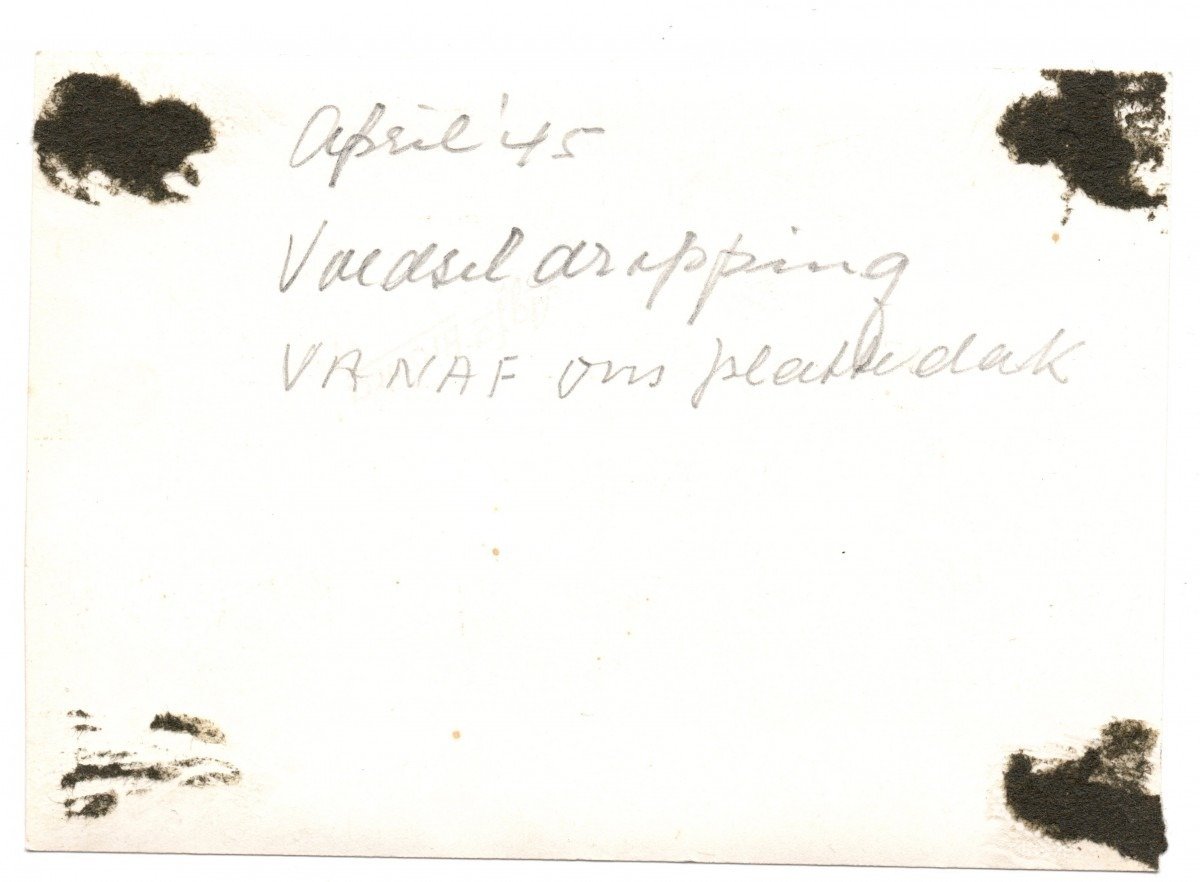 April '45
Voedseldropping
VANAF ons platte dak